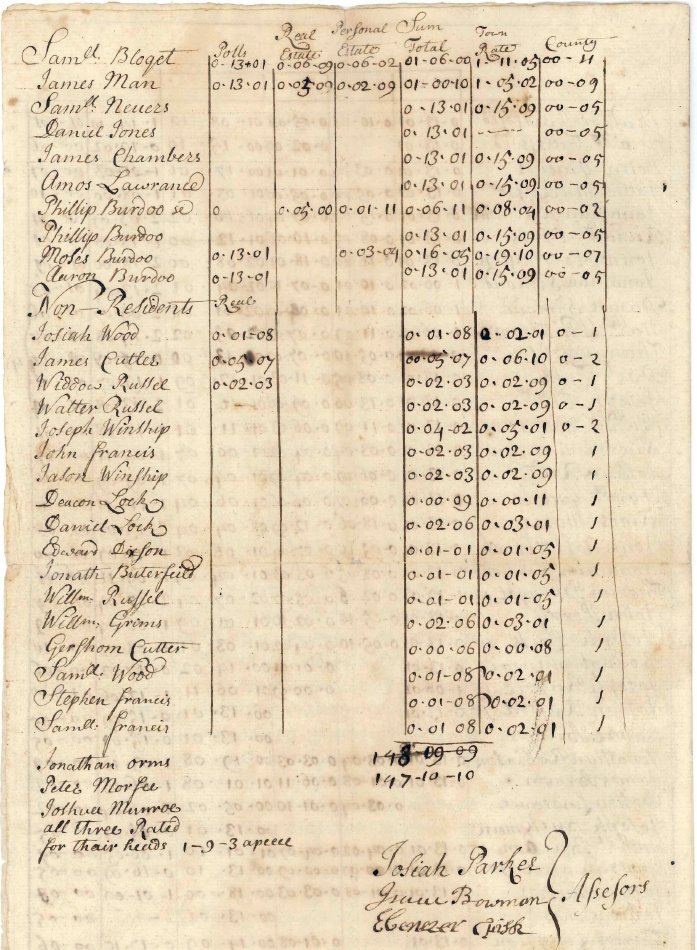 Polls Real Estate Personal Estate Sum Total Town Rate County
Samll. Bloget 0-13-01 0-06-09 0-06-02 01-06-00 1-11-05 00-11
James Man 0-13-01 0-05-09 0-02-09 01-00-10 1-05-02 00-09
Samll. Nevers 0-13-01 0-15-09 00-05
Daniel Jones 0-13-01 ---- 00-05
James Chambers 0-13-01 0-15-09 00-05
Amos Lawrance 0-13-01 0-15-09 00-05
Phillip Burdoo se 0 0-05-00 0-01-11 0-06-11 0-08-04 00-02
Phillip Burdoo 0-13-01 0-15-09 00-05
Moses Burdoo 0-13-01 0-03-04 0-16-05 0-19-10 00-07
Aaron Burdoo 0-13-01 0-13-01 0-15-09 00-05
Non-Residents Real
Josiah Wood 0-01-08 0-01-08 0-02-01 0-1
James Cutler 0-05-07 00-05-07 0-06-10 0-2
Widdow Russel 0-02-03 0-02-03 0-02-09 0-1
Walter Russel 0-02-03 0-02-09 0-1
Joseph Winship 0-04-02 0-05-01 0-2
John francis 0-02-03 0-02-09 1
Jason Winship 0-02-03 0-02-09 1
Deacon Lock 0-00-09 0-00-11 1
Daniel Lock 0-02-06 0-03-01 1
Edward Dixson 0-01-01 0-01-05 1
Jonath Buterfeild 0-01-01 0-01-05 1
Willm. Russel 0-01-01 0-01-05 1
Willm. Grims 0-02-06 0-03-01 1
Gershom Cutter 0-00-06 0-00-08 1
Samll. Wood 0-01-08 0-02-01 1
Stephen francis 0-01-08 0-02-01 1
Samll. francis 0-01 08 0-02-01 1
148-09-09
Jonathan orms 147-10-10
Peter Morsee
Joshua Munroe
all three Rated
for thair heads 1-9-3 apeece
Josiah Parker
Isaac Bowman Assesors
Ebenezer Fisk